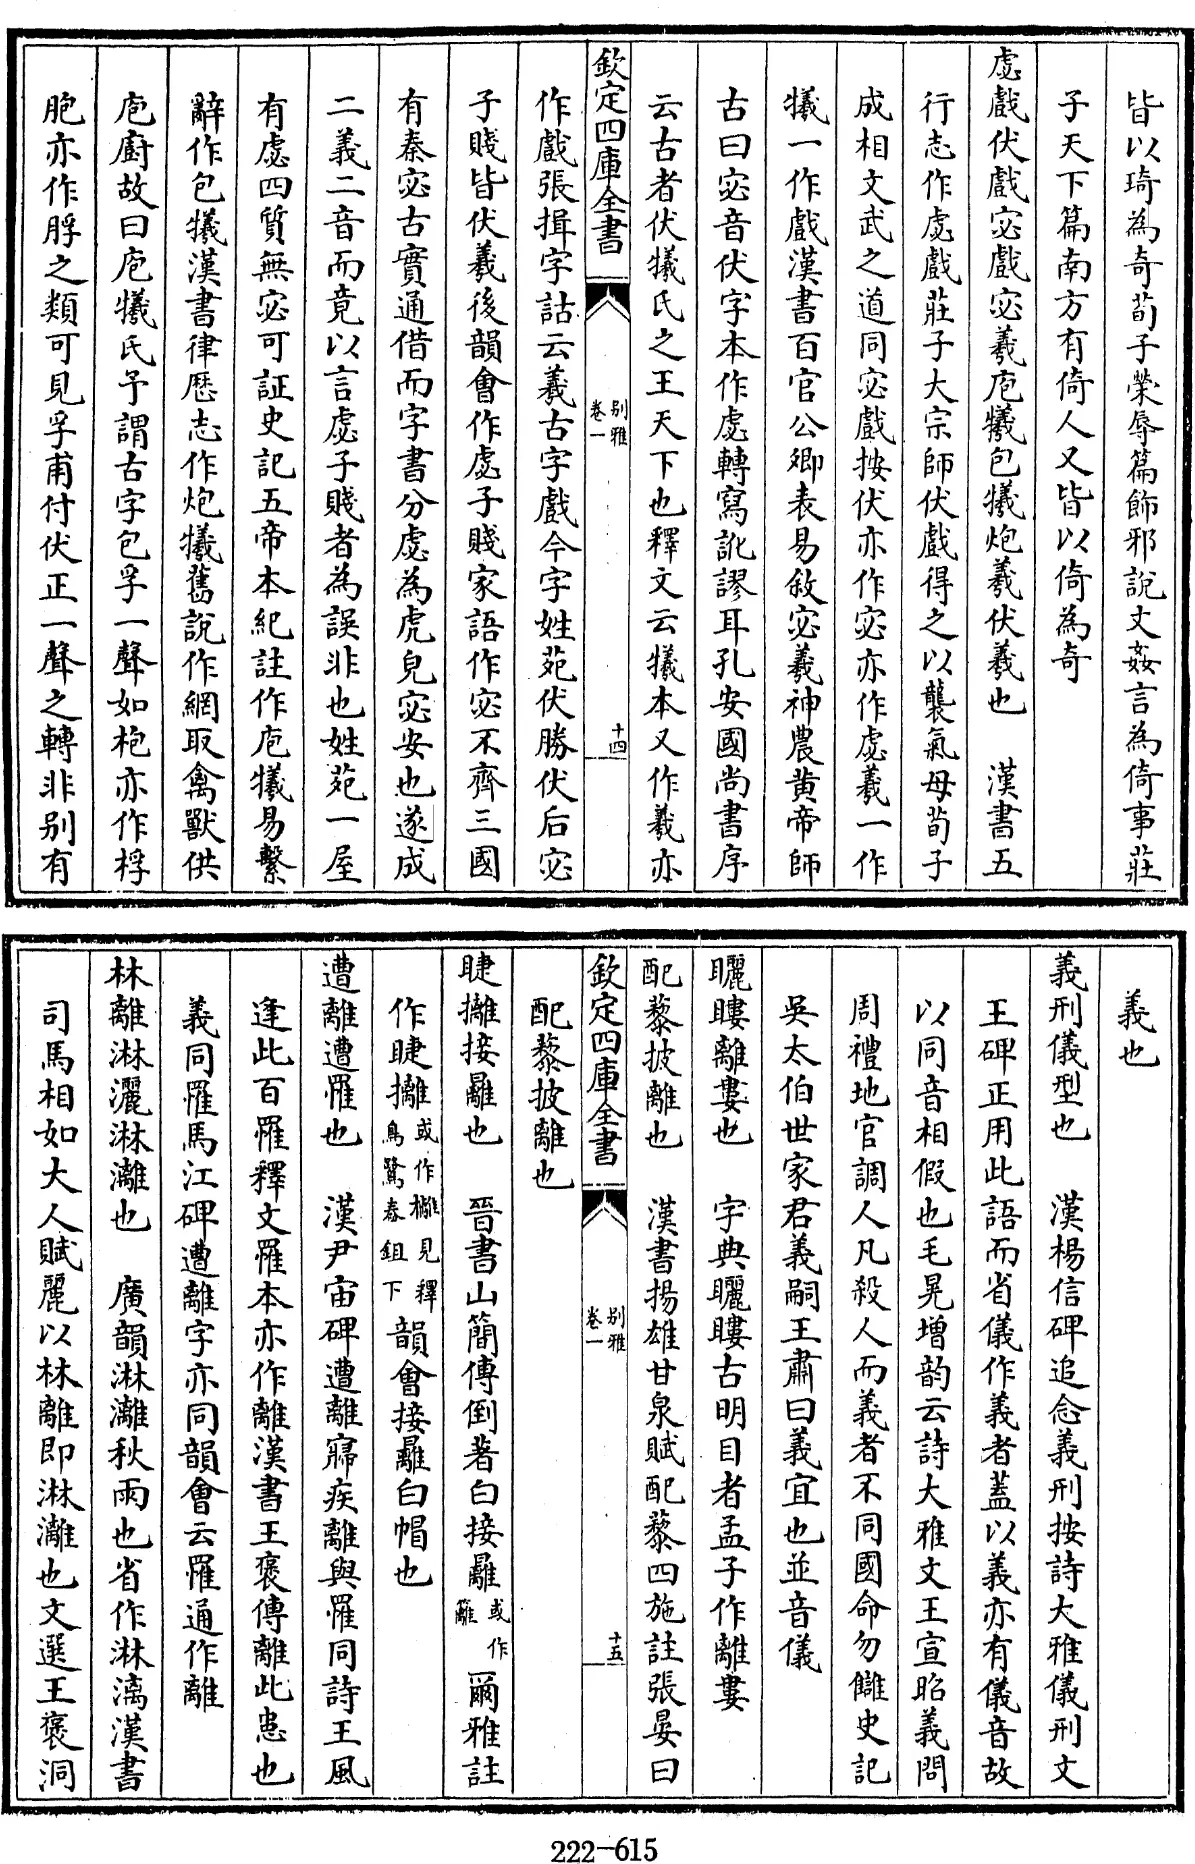 皆以琦為奇荀子榮辱篇飾邪說文姦言為倚事莊
子天下篇南方有倚人又皆以倚為奇
虙戲伏戲宓戲宓羲庖犧包犧炮羲伏羲也　漢書五
行志作虙戲莊子大宗師伏戲得之以襲氣母荀子
成相文武之道同宓戲按伏亦作宓亦作虙羲一作
犧一作戲漢書百官公卿表易敘宓羲神農黄帝師
古曰宓音伏字本作虙轉寫訛謬耳孔安國尚書序
云古者伏犧氏之王天下也釋文云犧本又作羲亦
欽定四庫全書
别雅
卷一
十四
作戲張揖字詁云羲古字戲今字姓苑伏勝伏后宓
子賤皆伏羲後韻會作虙子賤家語作宓不齊三國
有秦宓古實通借而字書分虙為虎皃宓安也遂成
二義二音而竟以言虙子賤者為誤非也姓苑一屋
有虙四質無宓可証史記五帝本紀註作庖犧易繫
辭作包犧漢書律歴志作炮犧舊說作網取禽獸供
庖廚故曰庖犧氏予謂古字包孚一聲如枹亦作桴
胞亦作脬之類可見孚甫付伏正一聲之轉非别有
義也
義刑儀型也　漢楊信碑追念義刑按詩大雅儀刑文
王碑正用此語而省儀作義者蓋以義亦有儀音故
以同音相假也毛晃增韵云詩大雅文王宣昭義問
周禮地官調人凡殺人而義者不同國命勿讎史記
吳太伯世家君義嗣王肅曰義宜也並音儀
矖瞜離婁也　字典矖瞜古明目者孟子作離婁
配藜披離也　漢書揚雄甘泉賦配藜四施註張晏曰
欽定四庫全書
别雅
卷一
十五
配藜披離也
睫攡接䍦也　晉書山簡傳倒著白接䍦或作
籬爾雅註
作睫攡或作欐見釋
鳥鷺舂鉏下韻會接䍦白帽也
遭離遭罹也　漢尹宙碑遭離寢疾離與罹同詩王風
逢此百罹釋文罹本亦作離漢書王褒傳離此患也
義同罹馬江碑遭離字亦同韻會云罹通作離
林離淋灑淋漓也　廣韻淋漓秋雨也省作淋漓漢書
司馬相如大人賦麗以林離即淋漓也文選王褒洞
222-615